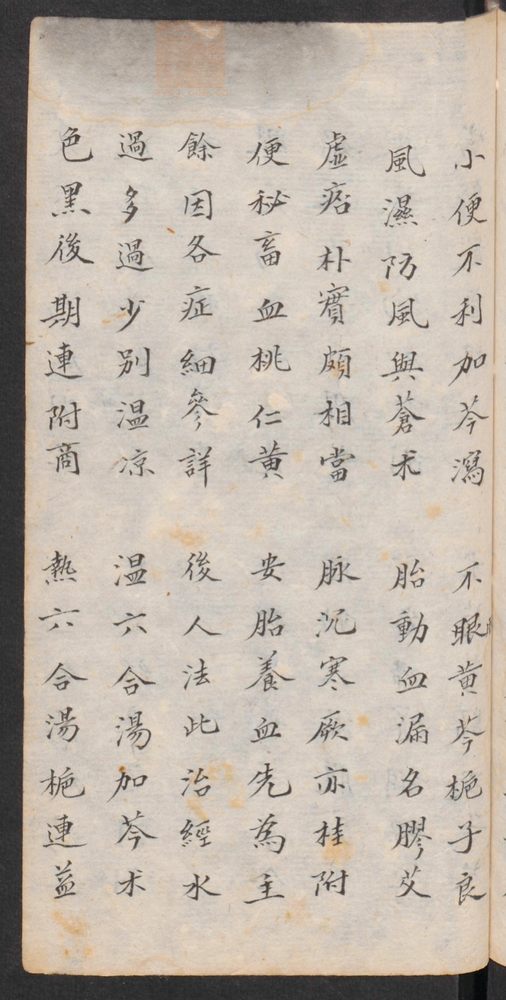 小便不利加芩瀉 不眼黄芩梔子良
風濕防風與蒼术 胎動血漏名膠艾
虛痞朴實頗相當 脉沉寒厥亦桂附
便秘畜血桃仁黄 安胎養血先為主
餘因各症細參詳 後人法此治經水
過多過少别温凉 温六合湯加芩术
色黑後期連附商 熱六合湯梔連益